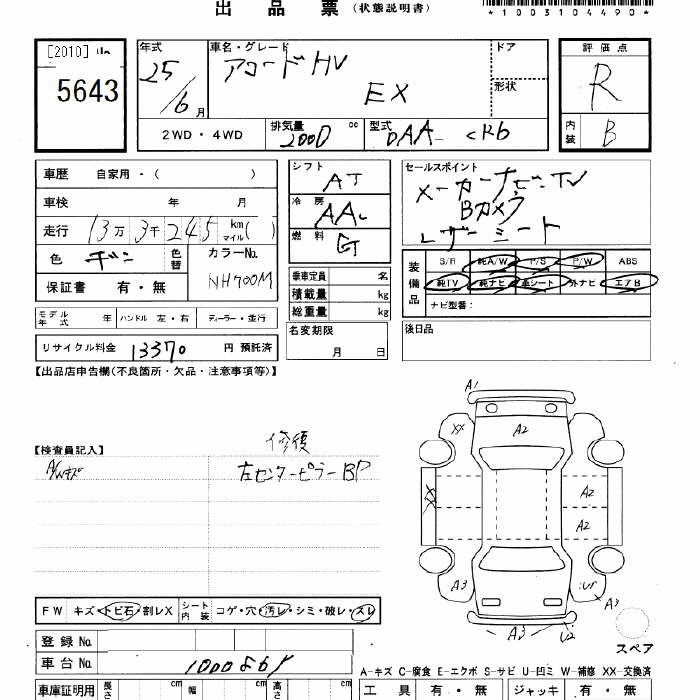 出品票(状態説明書)
*1003104490*
[2010]
5643
年式 25/6月
車名・グレード アコードHV EX
ドア
形状
評価点 R
内装 B
2WD・4WD 排気量 2000 cc 型式 DAA-CR6
車歴 自家用・( )
車検 年 月
走行 13万3千245 km マイル( )
色 ギン 色替 カラーNo. NH700M
保証書 有・無
シフト AT
冷房 AAC
燃料 G
乗車定員 名
積載量 kg
総重量 kg
セールスポイント
メーカーナビ・TV
Bカメラ
レザーシート
装備品 S/R 純A/W P/S P/W ABS
純TV 純ナビ 革シート 外ナビ エアB
ナビ型番:
モデル年式 年 ハンドル 左・右 ディーラー・並行
名変期限 月 日
後日品
リサイクル料金 13370 円 預託済
【出品店申告欄(不良箇所・欠品・注意事項等)】
【検査員記入】
修復
左センターピラーBP
A1
XX
A2
A2
A2
A3
A3
A3
U2
スペア
FW キズ・トビ石・割レX シート内装 コゲ・穴・汚レ・シミ・破レ・スレ
登録No.
車台No.
A-キズ C-腐食 E-エクボ S-サビ U-凹ミ W-補修 XX-交換済
車庫証明用 長さ cm 幅 cm cm
工具 有・無 ジャッキ 有・無